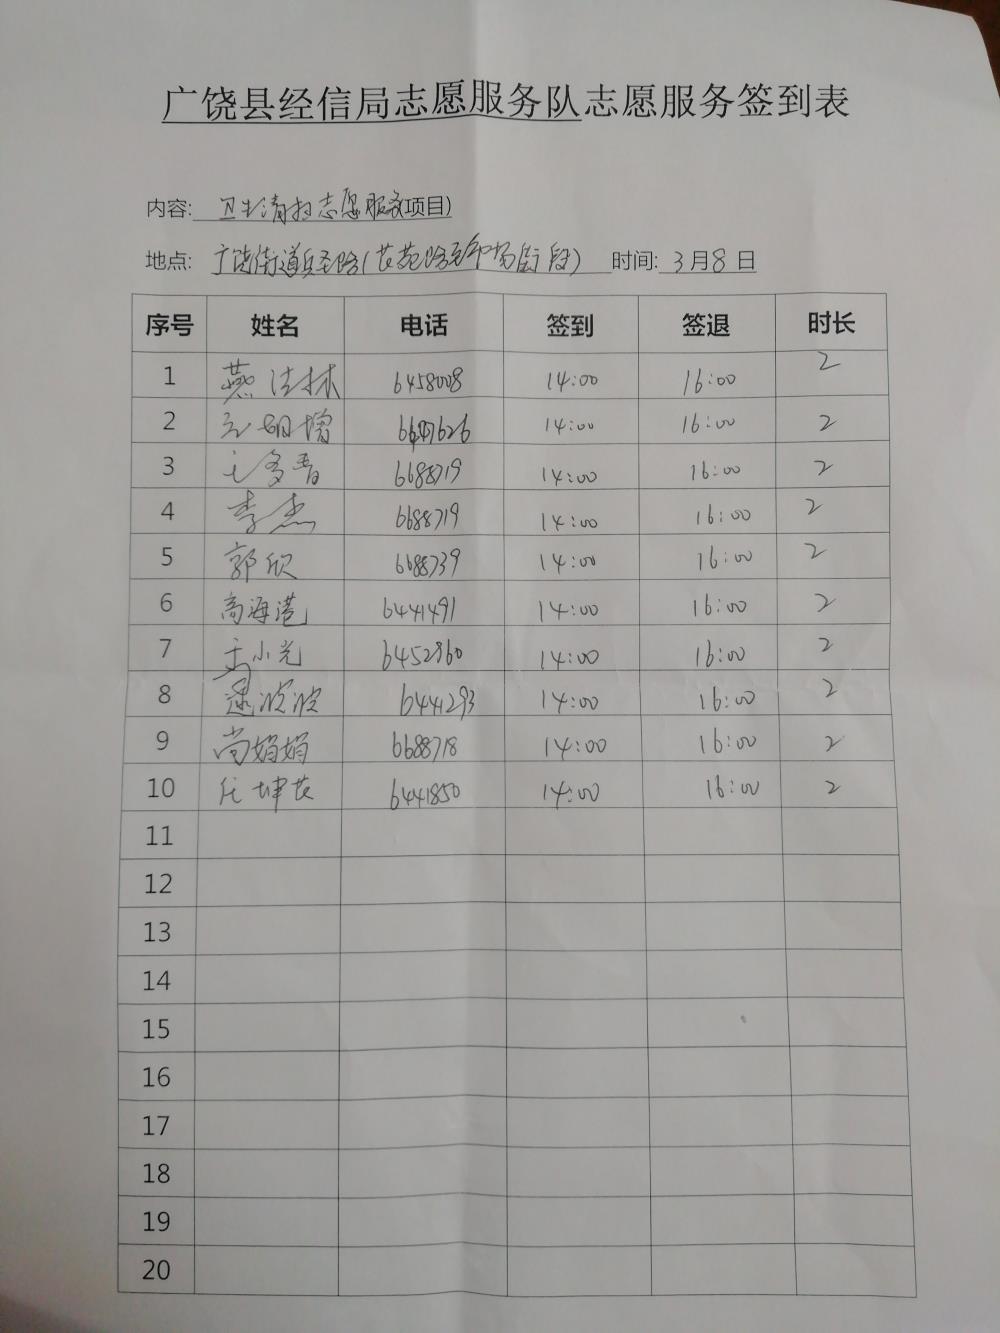 广饶县经信局志愿服务队志愿服务签到表
内容: 卫生清扫志愿服务项目)
地点: 广饶街道兵圣路( 时间: 3月8日
序号 姓名 电话 签到 签退 时长
1 燕法林 6458008 14:00 16:00 2
2 增 6647626 14:00 16:00 2
3 6688719 14:00 16:00 2
4 李杰 6688719 14:00 16:00 2
5 郭欣 6688739 14:00 16:00 2
6 高海港 6441491 14:00 16:00 2
7 于小光 6452860 14:00 16:00 2
8 逯波波 6441293 14:00 16:00 2
9 尚娟娟 6688718 14:00 16:00 2
10 任坤 6441850 14:00 16:00 2
11
12
13
14
15
16
17
18
19
20